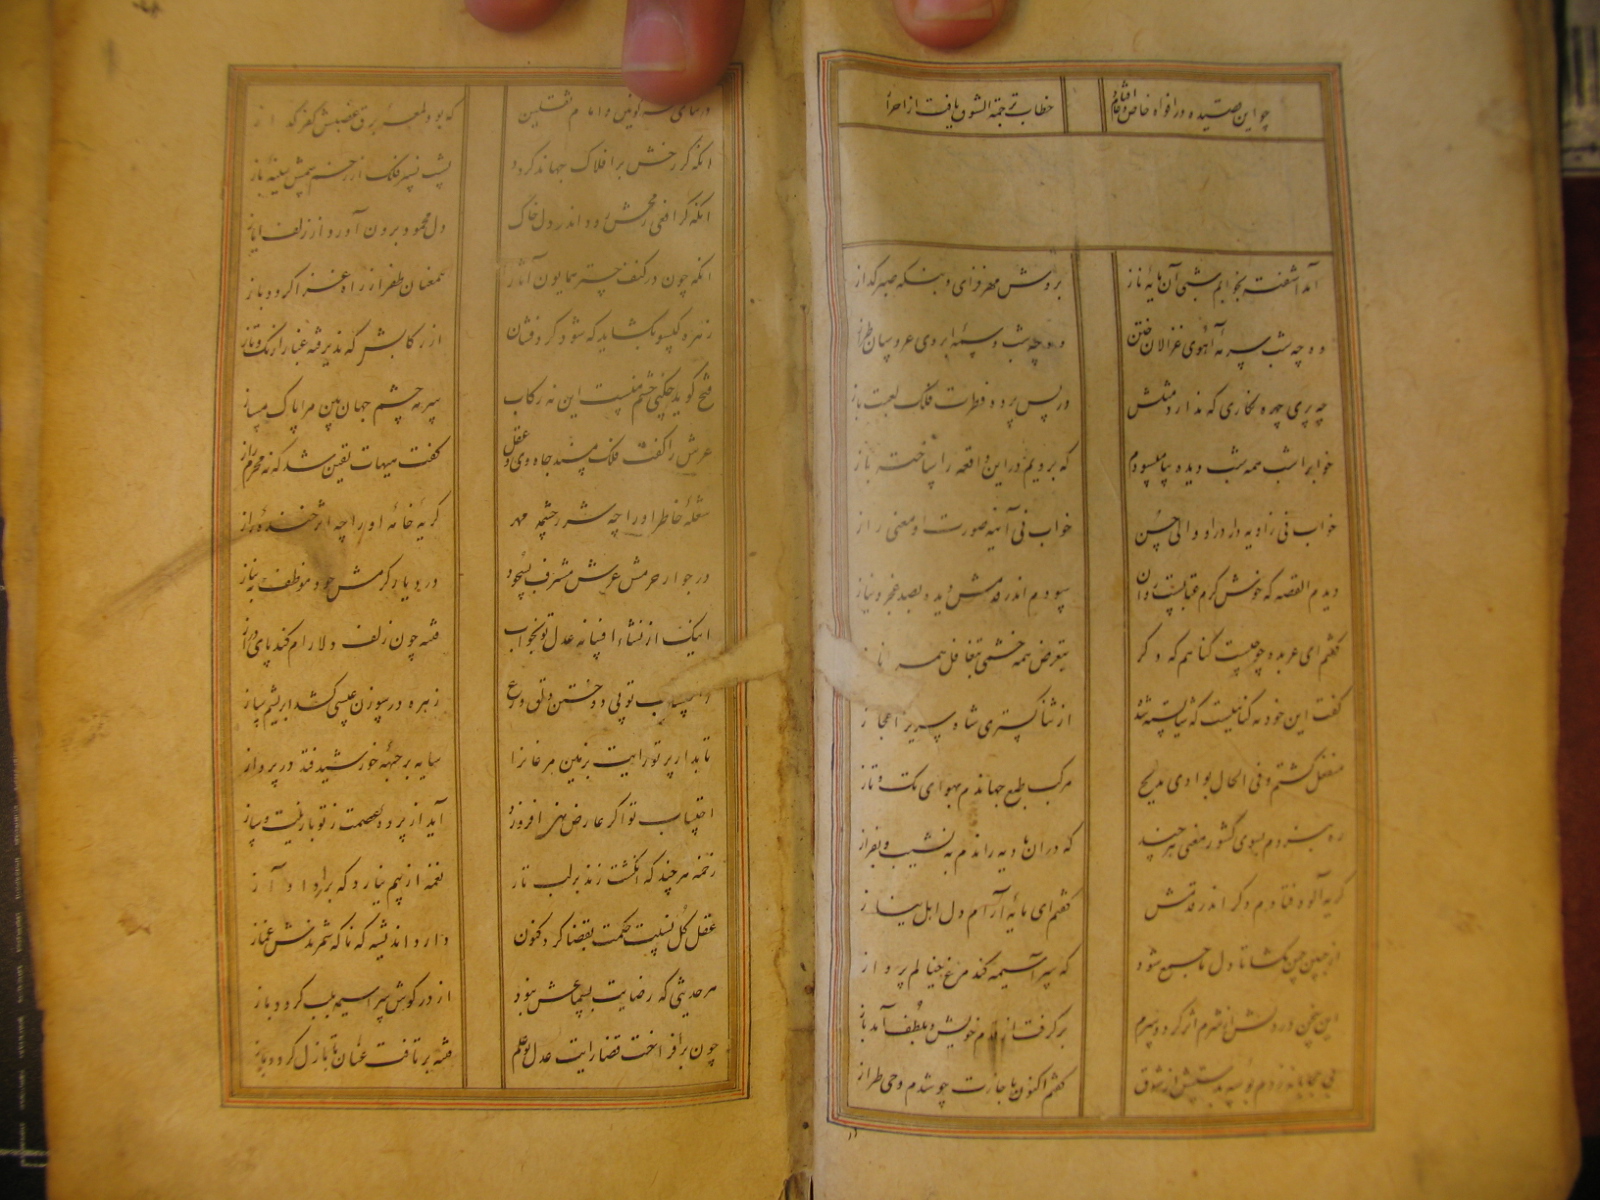 چو این قصیده در افواه خاص و عام افتاد
خطاب ترجمة الشوق یافت از احرار
آمد آشفته بخوابم شبی آن مایهٔ ناز
بروش مهر فزای و بنگه صبر گداز
وه چه شب سرمهٔ آهوی غزالان ختن
وه چه شب وسمهٔ ابروی عروسان طراز
چه پری چهره نگاری که ندارد مثلش
در پس پرده فطرت فلک لعبت باز
خوابم امشب همه شب دیده بپا میسودم
که برویم در این واقعه را ساخته باز
خواب نی زاویه دار در او والی حسن
خواب نی آینه صورت او معنی راز
دیدم القصه که خوش گرم عتابست و ان
سودم اندر قدمش دیده بصد عجز و نیاز
گفتم ای عربده جو چیست گناهم که دگر
بتعرض همه خشمی بتغافل همه ناز
گفت این خود نه گناهیست که شایسته شد
از ثنا گستری شاه سریر اعجاز
منفعل گشتم و فی الحال بوادی مدیح
مرکب طبع جهاندم بهوای تک و تاز
ره نبردم بسوی کشور معنی هر چند
که در آن بادیه راندم به نشیب و بفراز
گریه آلود فتادم دگر اندر قدمش
گفتم ای مایهٔ آرام دل اهل نیاز
از جبین چین بگشا تا دل ما جمع شود
که سراسیمه کند مرغ خیالم پرواز
این سخن در دلش از شرم اثر کرد و سرم
برگرفت از قدم خویش و بلطف آمد باز
بی محابا زدم بوسه بدستش از شوق
گفتم اکنون باجازت چو شدم وحی طراز
در
در ثنای شه کونین و امام ثقلین
که بود لمعهٔ برق غضبش کفر گداز
آنکه گر رخش بر افلاک جهاند گردد
پشت سپر فلک از زخم سمش سینه باز
آنکه گر افعی رمحش رود اندر دل خاک
دل محمود برون آورد از زلف ایاز
آنکه چون در کنف چتر همایون آثار
همعنان ظفر از راه غزا گردد باز
زهره گیسو بگشاید که شود گرد فشان
از رکابش که پذیرفته غبار از تک و تاز
فتح گوید چکنی چشم منست این نه رکاب
سرمه چشم جهان بین مرا پاک مساز
عرش را گفت فلک مسند جاه وی و عقل
گفت هیهات یقین شد که نهٔ محرم راز
شعلهٔ خاطر او را چه شرر چشمهٔ مهر
گریهٔ خامه او را چه اثر خندهٔ راز
در جوار حرمش عرش مشرف بسجود
در دیار کرمش جود موظف به نیاز
اینک از نشاء افسانه عدل تو بخواب
فتنه چون زلف دلارام کند پای دراز
احتساب تو پی دوختن دلق ورع
زهره در سوزن عیسی کشد ابریشم ساز
تابد ار پرتو رایت بزمین مرغانرا
سایه بر جبههٔ خورشید فتد در پرواز
احتساب تو اگر عارض نهی افروزد
آید از پرده عصمت ز تو بازینت و ساز
زخمه هر چند که انگشت زند بر لب تار
نغمه از بیم نیارد که برارد آواز
عقل کل نسبت حکمت بقضا کرد کنون
دارد اندیشه که ناگه شمرندش غماز
هر حدیثی که رضایت بسماعش نبود
از در گوش سراسیمه بلب گردد باز
چون برافراخت قضا رایت عدل تو علم
فتنه برتافت عنان تا بازل گردد باز